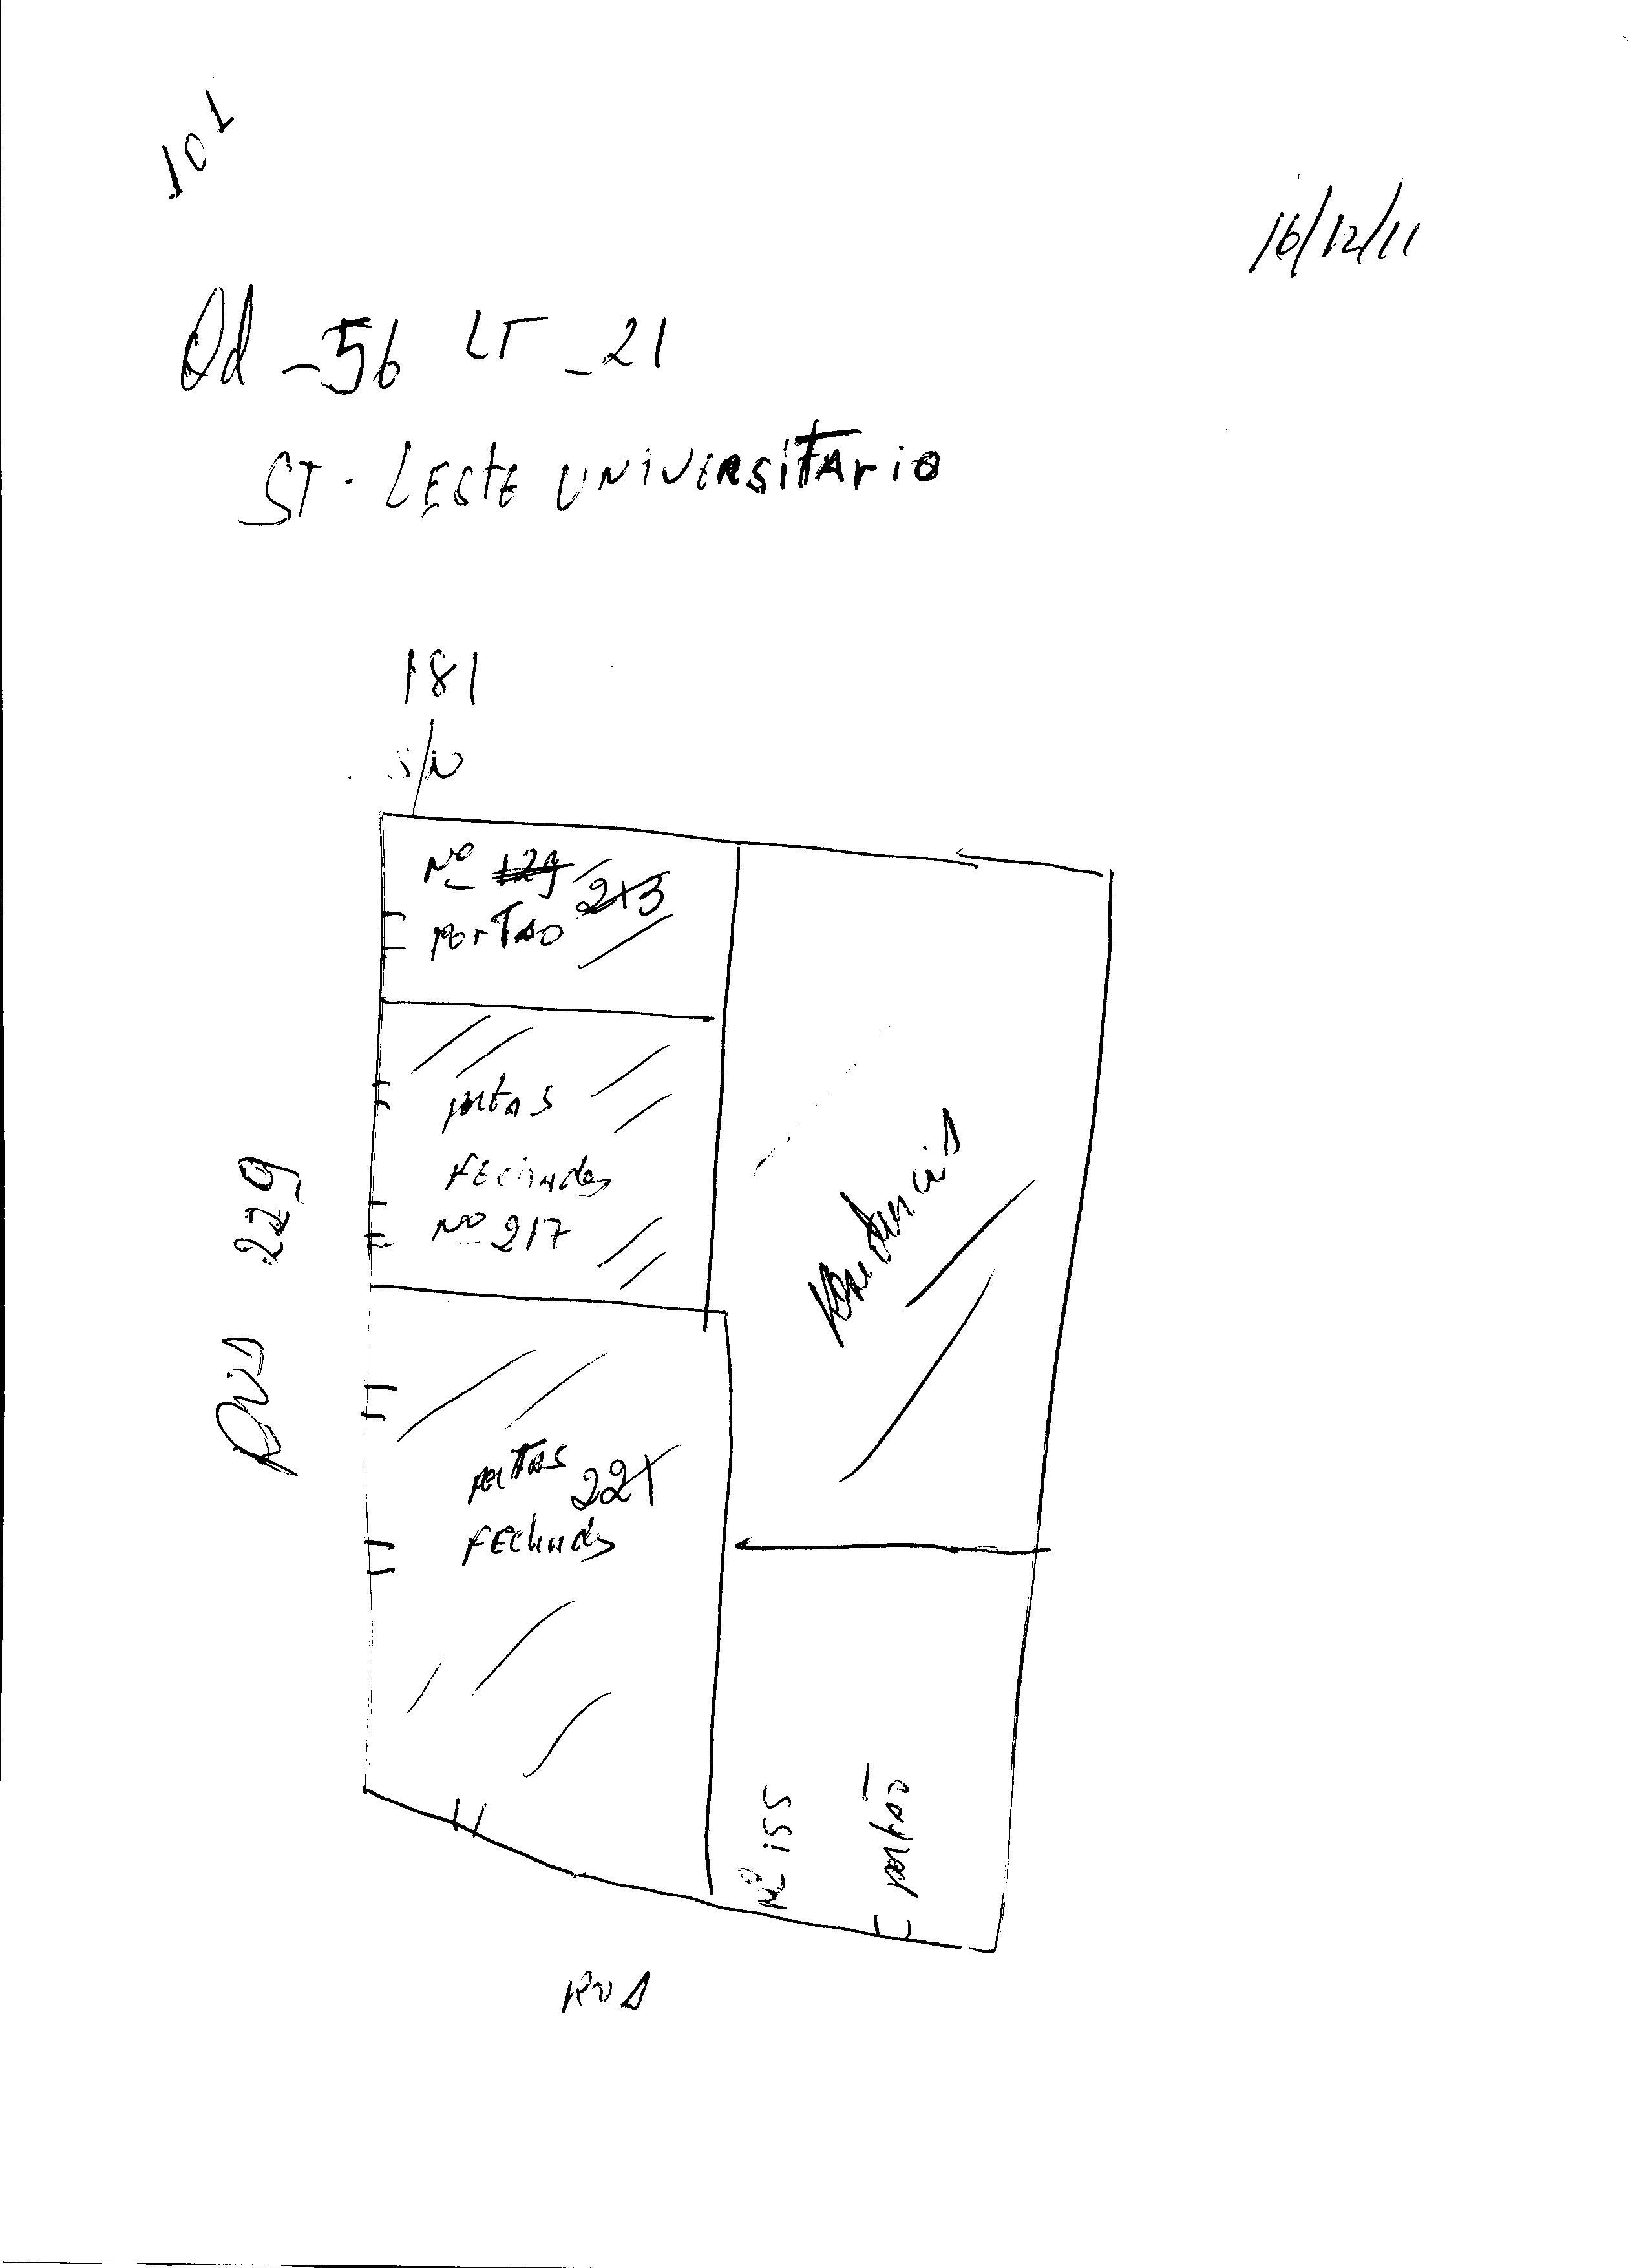 101
16/12/11
Qd - 56 LT - 21
ST. LESTE UNIVERSITARIO
181
S/N
Nº 129 213
PORTAO
portas
FEchadas
Nº 217
RUA 229
Residencia
portas 221
FEchadas
Nº 155
portão
RUA